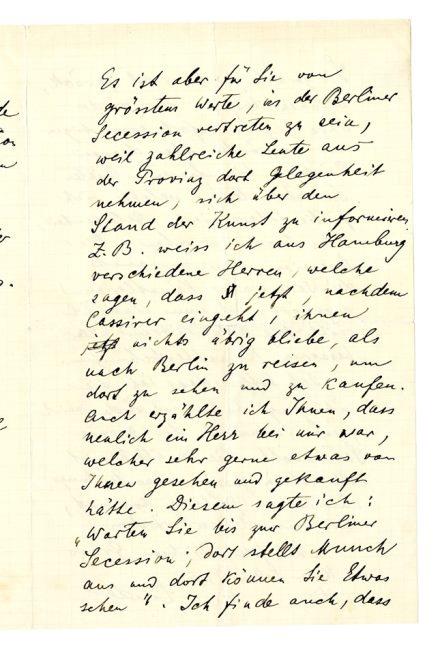 Es ist aber für Sie von
grösstem Werte, in der Berliner
Secession vertreten zu sein,
weil zahlreiche Leute aus
der Provinz dort Gelegenheit
nehmen, sich über den
Stand der Kunst zu informiren.
Z. B. weiss ich aus Hamburg
verschiedene Herren, welche
sagen, dass jetzt, nachdem
Cassirer eingeht, ihnen
nichts übrig bliebe, als
nach Berlin zu reisen, um
dort zu sehen und zu kaufen.
Auch erzählte ich Ihnen, dass
neulich ein Herr bei mir war,
welcher sehr gerne etwas von
Ihnen gesehen und gekauft
hätte. Diesem sagte ich:
„Warten Sie bis zur Berliner
Secession; dort stellt Munch
aus und dort können Sie Etwas
sehen“. Ich finde auch, dass